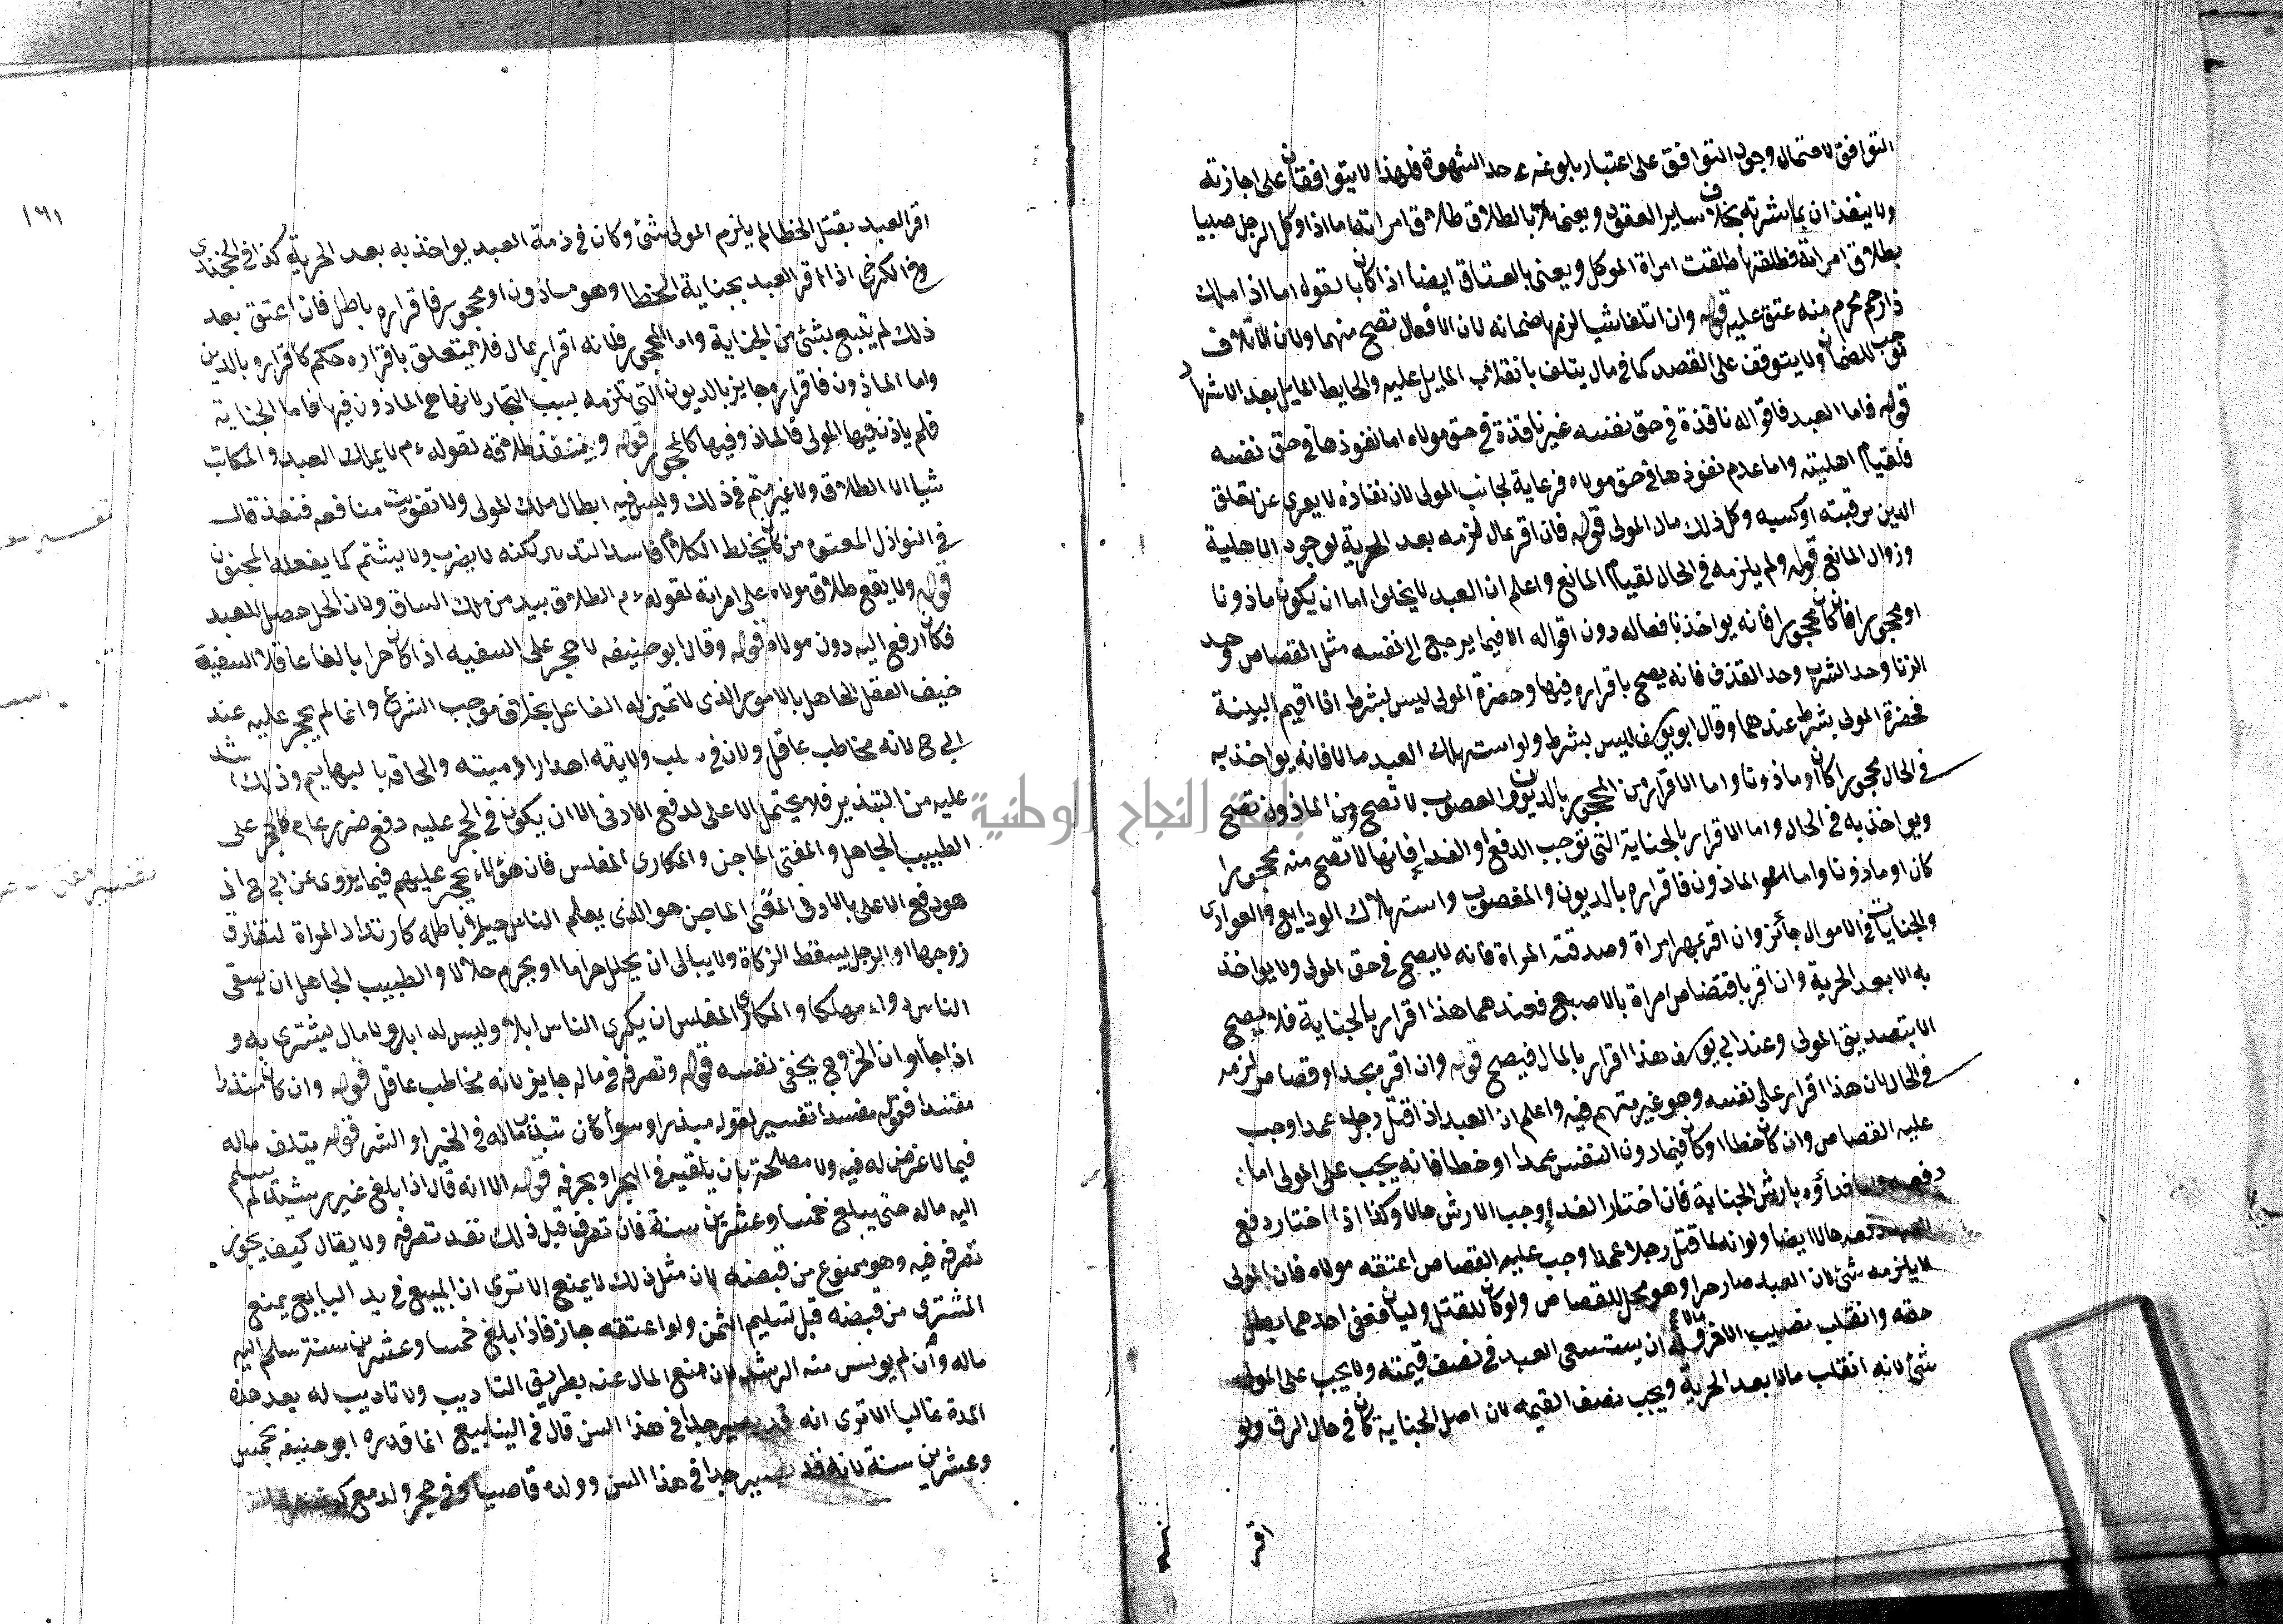 التوافق لاحتمال وجود التوافق على اعتبار بلوغه حد الشهوة فلهذا لا يتوافقان على اجازته
ولا ينفذان بمباشرته بخلاف ساير العقود ويعنى بالطلاق طلاق امراته اما اذا وكل الرجل صبيا
بطلاق امراته فطلقها طلقت امراة الموكل ويعنى بالعتاق ايضا اذا كان بالقوله اما اذا ملك
ذا رحم محرم منه عتق عليه قوله وان اتلفا شيا لزمهما ضمانه لان الافعال تصح منهما ولان الاتلاف
موجب للضمان ولا يتوقف على القصد كما فى مال يتلف بانقلاب المايل عليه والحايط المايل بعد الاشهاد
قوله فاما العبد فاقواله نافذة فى حق نفسه غير نافذة فى حق مولاه اما نفوذها فى حق نفسه
فلقيام اهليته واما عدم نفوذها فى حق مولاه فرعاية لجانب المولى لان نفاذه لا يعرى عن تعلق
الدين برقبته او كسبه وكل ذلك مال المولى قوله فان اقر بمال لزمه بعد الحرية لوجود الاهلية
وزوال المانع قوله ولم يلزمه فى الحال لقيام المانع واعلم ان العبد لا يخلوا اما ان يكون ماذونا
او محجورا فان كان محجورا فانه يواخذ بافعاله دون اقواله الا فيما يرجع الى نفسه مثل القصاص وحد
الزنا وحد الشرب وحد القذف فانه يصح باقراره فيها وحضرة المولى ليس بشرط اذا اقيم البينة
فحضرة المولى بشرط عندهما وقال ابو يوسف ليس بشرط ولو استهلك العبد مالا فانه يواخذ به
فى الحال محجورا كان او ماذونا واما الاقرار من المحجور بالديون والغصوب لا تصح ومن الماذون تصح
ويواخذ به فى الحال واما الاقرار بالجناية التى توجب الدفع او الفدا فانها لا تصح منه محجورا
كان او ماذونا واما الماذون فاقراره بالديون والمغصوب واستهلاك الودايع والعوارى
والجنايات فى الاموال جائز وان اقر بمهر امراة وصدقته المراة فانه لا يصح فى حق المولى ولا يواخذ
به الا بعد الحرية وان اقر باقتضاض امراة بالاصبع فعندهما هذا اقرار بالجناية فلا يصح
الا بتصديق المولى وعند ابى يوسف هذا اقرار بالمال فيصح قوله وان اقر بحد او قصاص لزمه
فى الحال لان هذا اقرار على نفسه وهو غير متهم فيه واعلم ان العبد اذا قتل رجلا عمدا وجب
عليه القصاص وان كان خطا او كان فيما دون النفس عمدا او خطا فانه يجب على المولى اما
دفعه فداؤه بارش الجناية فان اختار الفدا وجب الارش حالا وكذا اذا اختار دفع
حالا ايضا ولو انه لما قتل رجلا عمدا وجب عليه القصاص اعتقه مولاه فان المولى
لا يلزمه شئ لان العبد صار حرا وهو محل للقصاص ولو كان للقتل وليان فعفى احدهما بطل
حقه وانقلب نصيب الاخر مالا فله ان يستسعى العبد فى نصف قيمته ولا يجب على المولى
شئ لانه انقلب مالا بعد الحرية ويجب نصف القيمة لان اصل الجناية كان فى حال الرق ولو
اقر
١٦١
اقر العبد بقتل الخطا لم يلزم المولى شئ وكان فى ذمة العبد يواخذ به بعد الحرية كذا فى الخجندى
وفى الكرخى اذا اقر العبد بجناية الخطا وهو ماذون او محجور فاقراره باطل فان اعتق بعد
ذلك لم يتبع بشئ من الجناية واما المحجور فلانه اقرار بمال فلا يتعلق باقراره حكم كاقراره بالدين
واما الماذون فاقراره جايز بالديون التى تلزمه بسبب التجار لانها هى الماذون فيها فاما الجناية
فلم ياذن فيها المولى فالماذون فيها كالمحجور قوله وينفذ طلاقه لقوله ءم لا يملك العبد والمكاتب
شيا الا الطلاق ولا غير متهم فى ذلك وليس فيه ابطال ملك المولى ولا تفويت منافعه فنفذ قال
فى النوازل المعتوه من كان يختلط الكلام فاسد التدبير لكنه لا يضرب ولا يشتم كما يفعله المجنون
قوله ولا يقع طلاق مولاه على امراته لقوله ءم الطلاق بيد من ملك الساق ولان الحل حصل للعبد
فكان الرفع اليه دون مولاه قوله وقال ابو حنيفه لا حجر على السفيه اذا كان حرا بالغا عاقلا السفيه
خفيف العقل الجاهل بالامور الذى لا تميز له الفاعل بخلاف موجب الشرع وانما لم يحجر عليه عند
ابى ح لانه مخاطب عاقل ولان فى سلب ولايته اهدار ادميته والحاقه بالبهايم وذلك اشد
عليه من التبذير فلا يحتمل الاعلى لدفع الادنى الا ان يكون فى الحجر عليه دفع ضرر عام كالحجر على
الطبيب الجاهل والمفتى الماجن والمكارى المفلس فان هؤلاء يحجر عليهم فيما يروى عن ابى ح اذ
هو دفع الاعلى بالادنى المفتى الماجن هو الذى يعلم الناس حيلا باطله كارتداد المراة لتفارق
زوجها او الرجل ليسقط الزكاة ولا يبالى ان يحلل حراما او يحرم حلالا والطبيب الجاهل ان يسقى
الناس دواء مهلكا والمكارى المفلس ان يكرى الناس ابلا وليس له ابل ولا مال ليشترى به و
اذا جاء اوان الخروج يخفى نفسه قوله وتصرفه فى ماله جايز لانه مخاطب عاقل قوله وان كان مبذرا
مفسدا فقوله مفسدا تفسير لقوله مبذرا وسوا كان تبذير ماله فى الخير او الشر قوله يتلف ماله
فيما لا غرض له فيه ولا مصلحة بان يلقيه فى البحر او يحرقه قوله الا انه قال اذا بلغ غير رشيد لم يسلم
اليه ماله حتى يبلغ خمسا وعشرين سنة فان تصرف قبل ذلك نفذ تصرفه ولا يقال كيف يجوز
تصرفه فيه وهو ممنوع من قبضه لان مثل ذلك لا يمنع الا ترى ان المبيع فى يد البايع يمنع
المشترى من قبضه قبل تسليم الثمن ولو اعتقه جاز فاذا بلغ خمسا وعشرين سنة سلم اليه
ماله وان لم يونس منه الرشد لان منع المال عنه بطريق التاديب ولا تاديب له بعد هذه
المدة غالبا الا ترى انه قد يصير جدا فى هذا السن قال فى الينابيع انما قدره ابو حنيفه بخمس
وعشرين سنة لانه قد يصير جدا فى هذا السن وولده قاضيا وفى حجر ولد مع
جامعة النجاح الوطنية